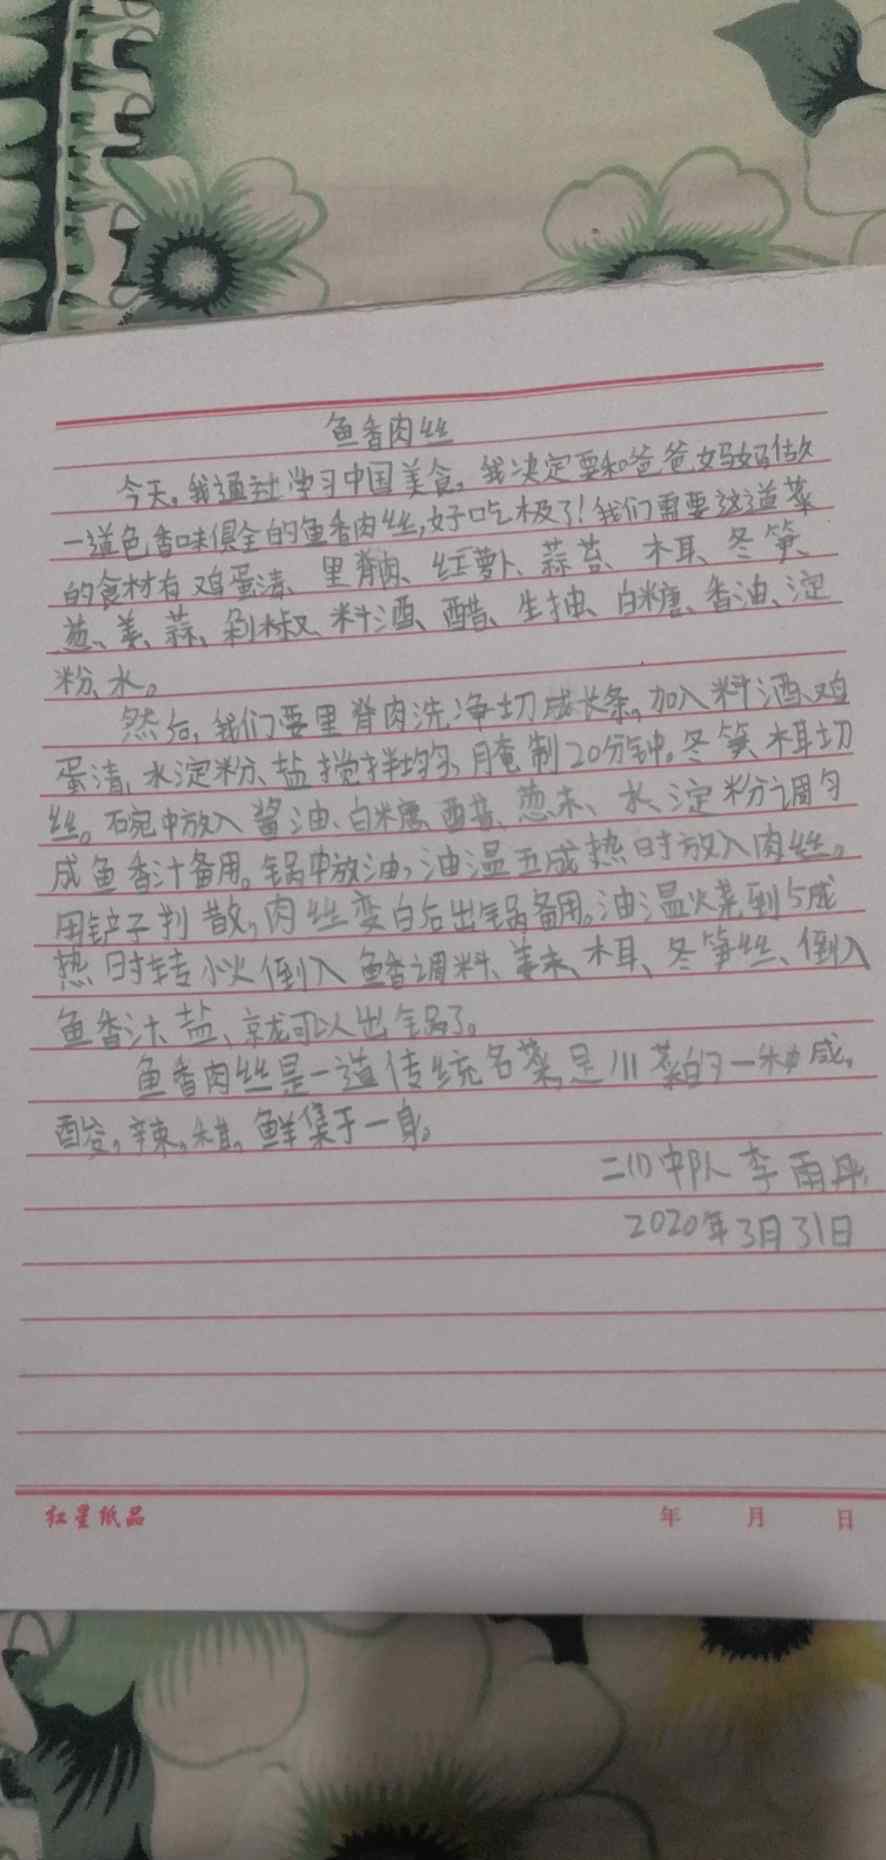 鱼香肉丝
今天，我通过学习中国美食，我决定要和爸爸妈妈做
一道色香味俱全的鱼香肉丝，好吃极了！我们需要这道菜
的食材有鸡蛋清、里脊肉、红萝卜、蒜苔、木耳、冬笋、
葱、姜、蒜、剁椒、料酒、醋、生抽、白糖、香油、淀
粉、水。
然后，我们要里脊肉洗净切成长条，加入料酒、鸡
蛋清、水淀粉、盐搅拌均匀，腌制20分钟。冬笋、木耳切
丝。碗中放入酱油、白糖、醋、葱末、水、淀粉调匀
成鱼香汁备用。锅中放油，油温五成热时放入肉丝。
用铲子划散，肉丝变白后出锅备用。油温烧到5成
热时转小火倒入鱼香调料、姜末、木耳、冬笋丝、倒入
鱼香汁、盐、就可以出锅了。
鱼香肉丝是一道传统名菜，是川菜的一种咸，
酸，辣，甜，鲜集于一身。
二(1)中队 李雨丹
2020年3月31日
红星纸品 年 月 日